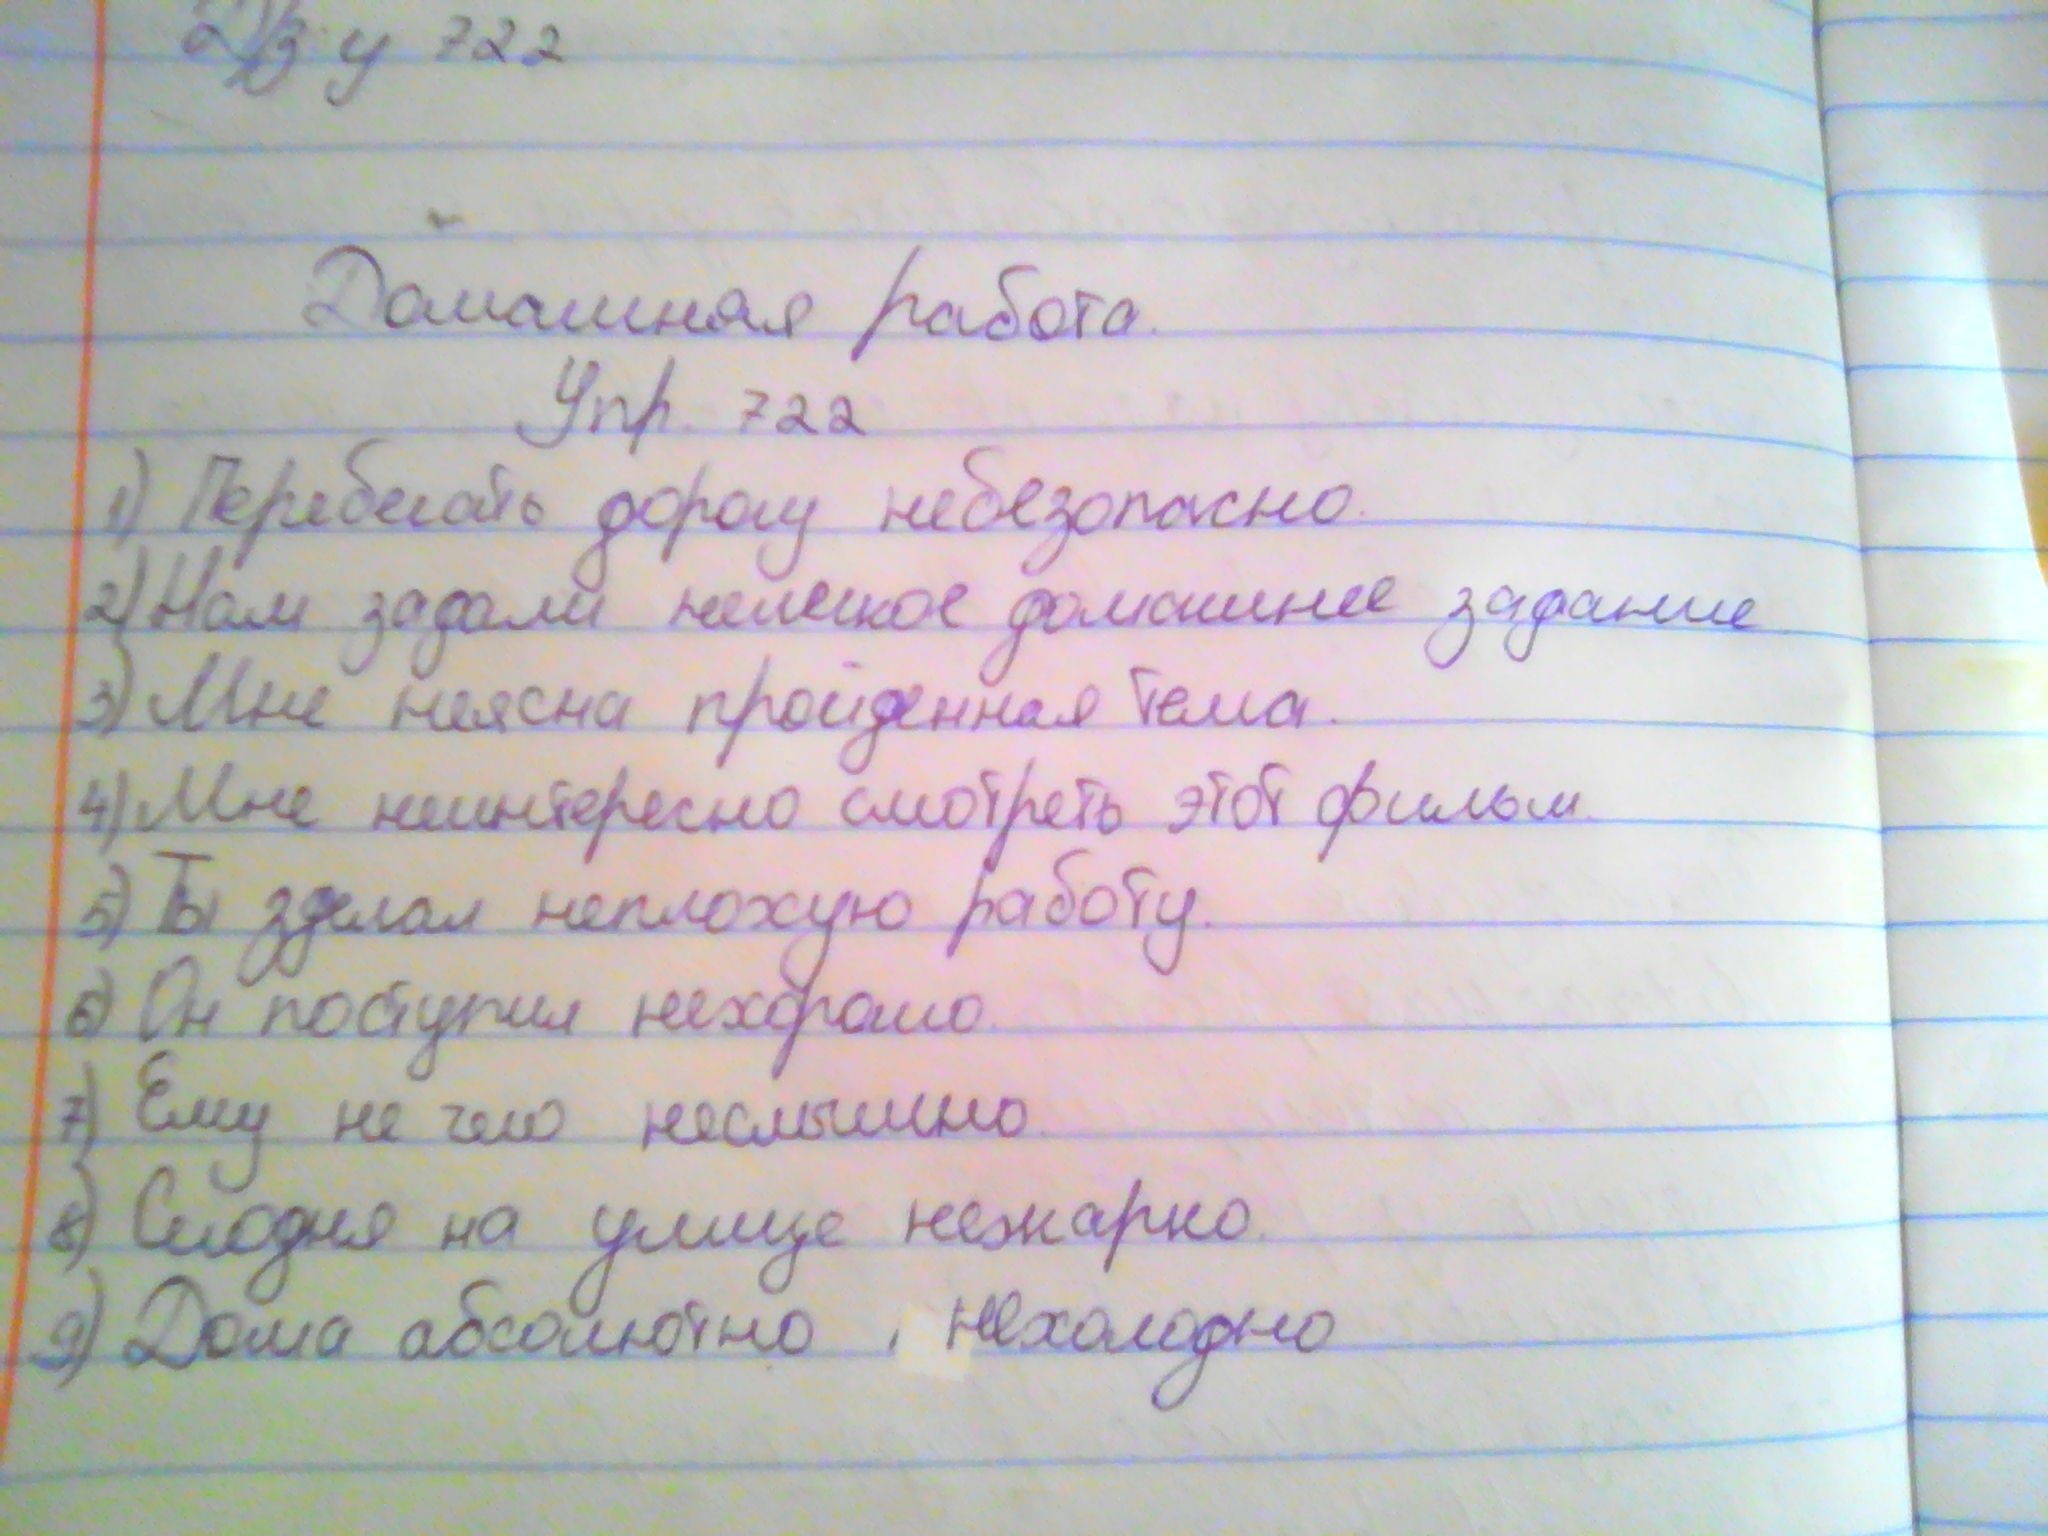 Д/З у 722
Домашная работа.
Упр. 722
1) Перебегать дорогу небезопасно.
2) Нам задали нелегкое домашнее задание
3) Мне неясна пройденная тема.
4) Мне неинтересно смотреть этот фильм.
5) Ты зделал неплохую работу.
6) Он поступил нехорошо.
7) Ему не чего неслышно.
8) Сегодня на улице нежарко.
9) Дома абсолютно , нехолодно